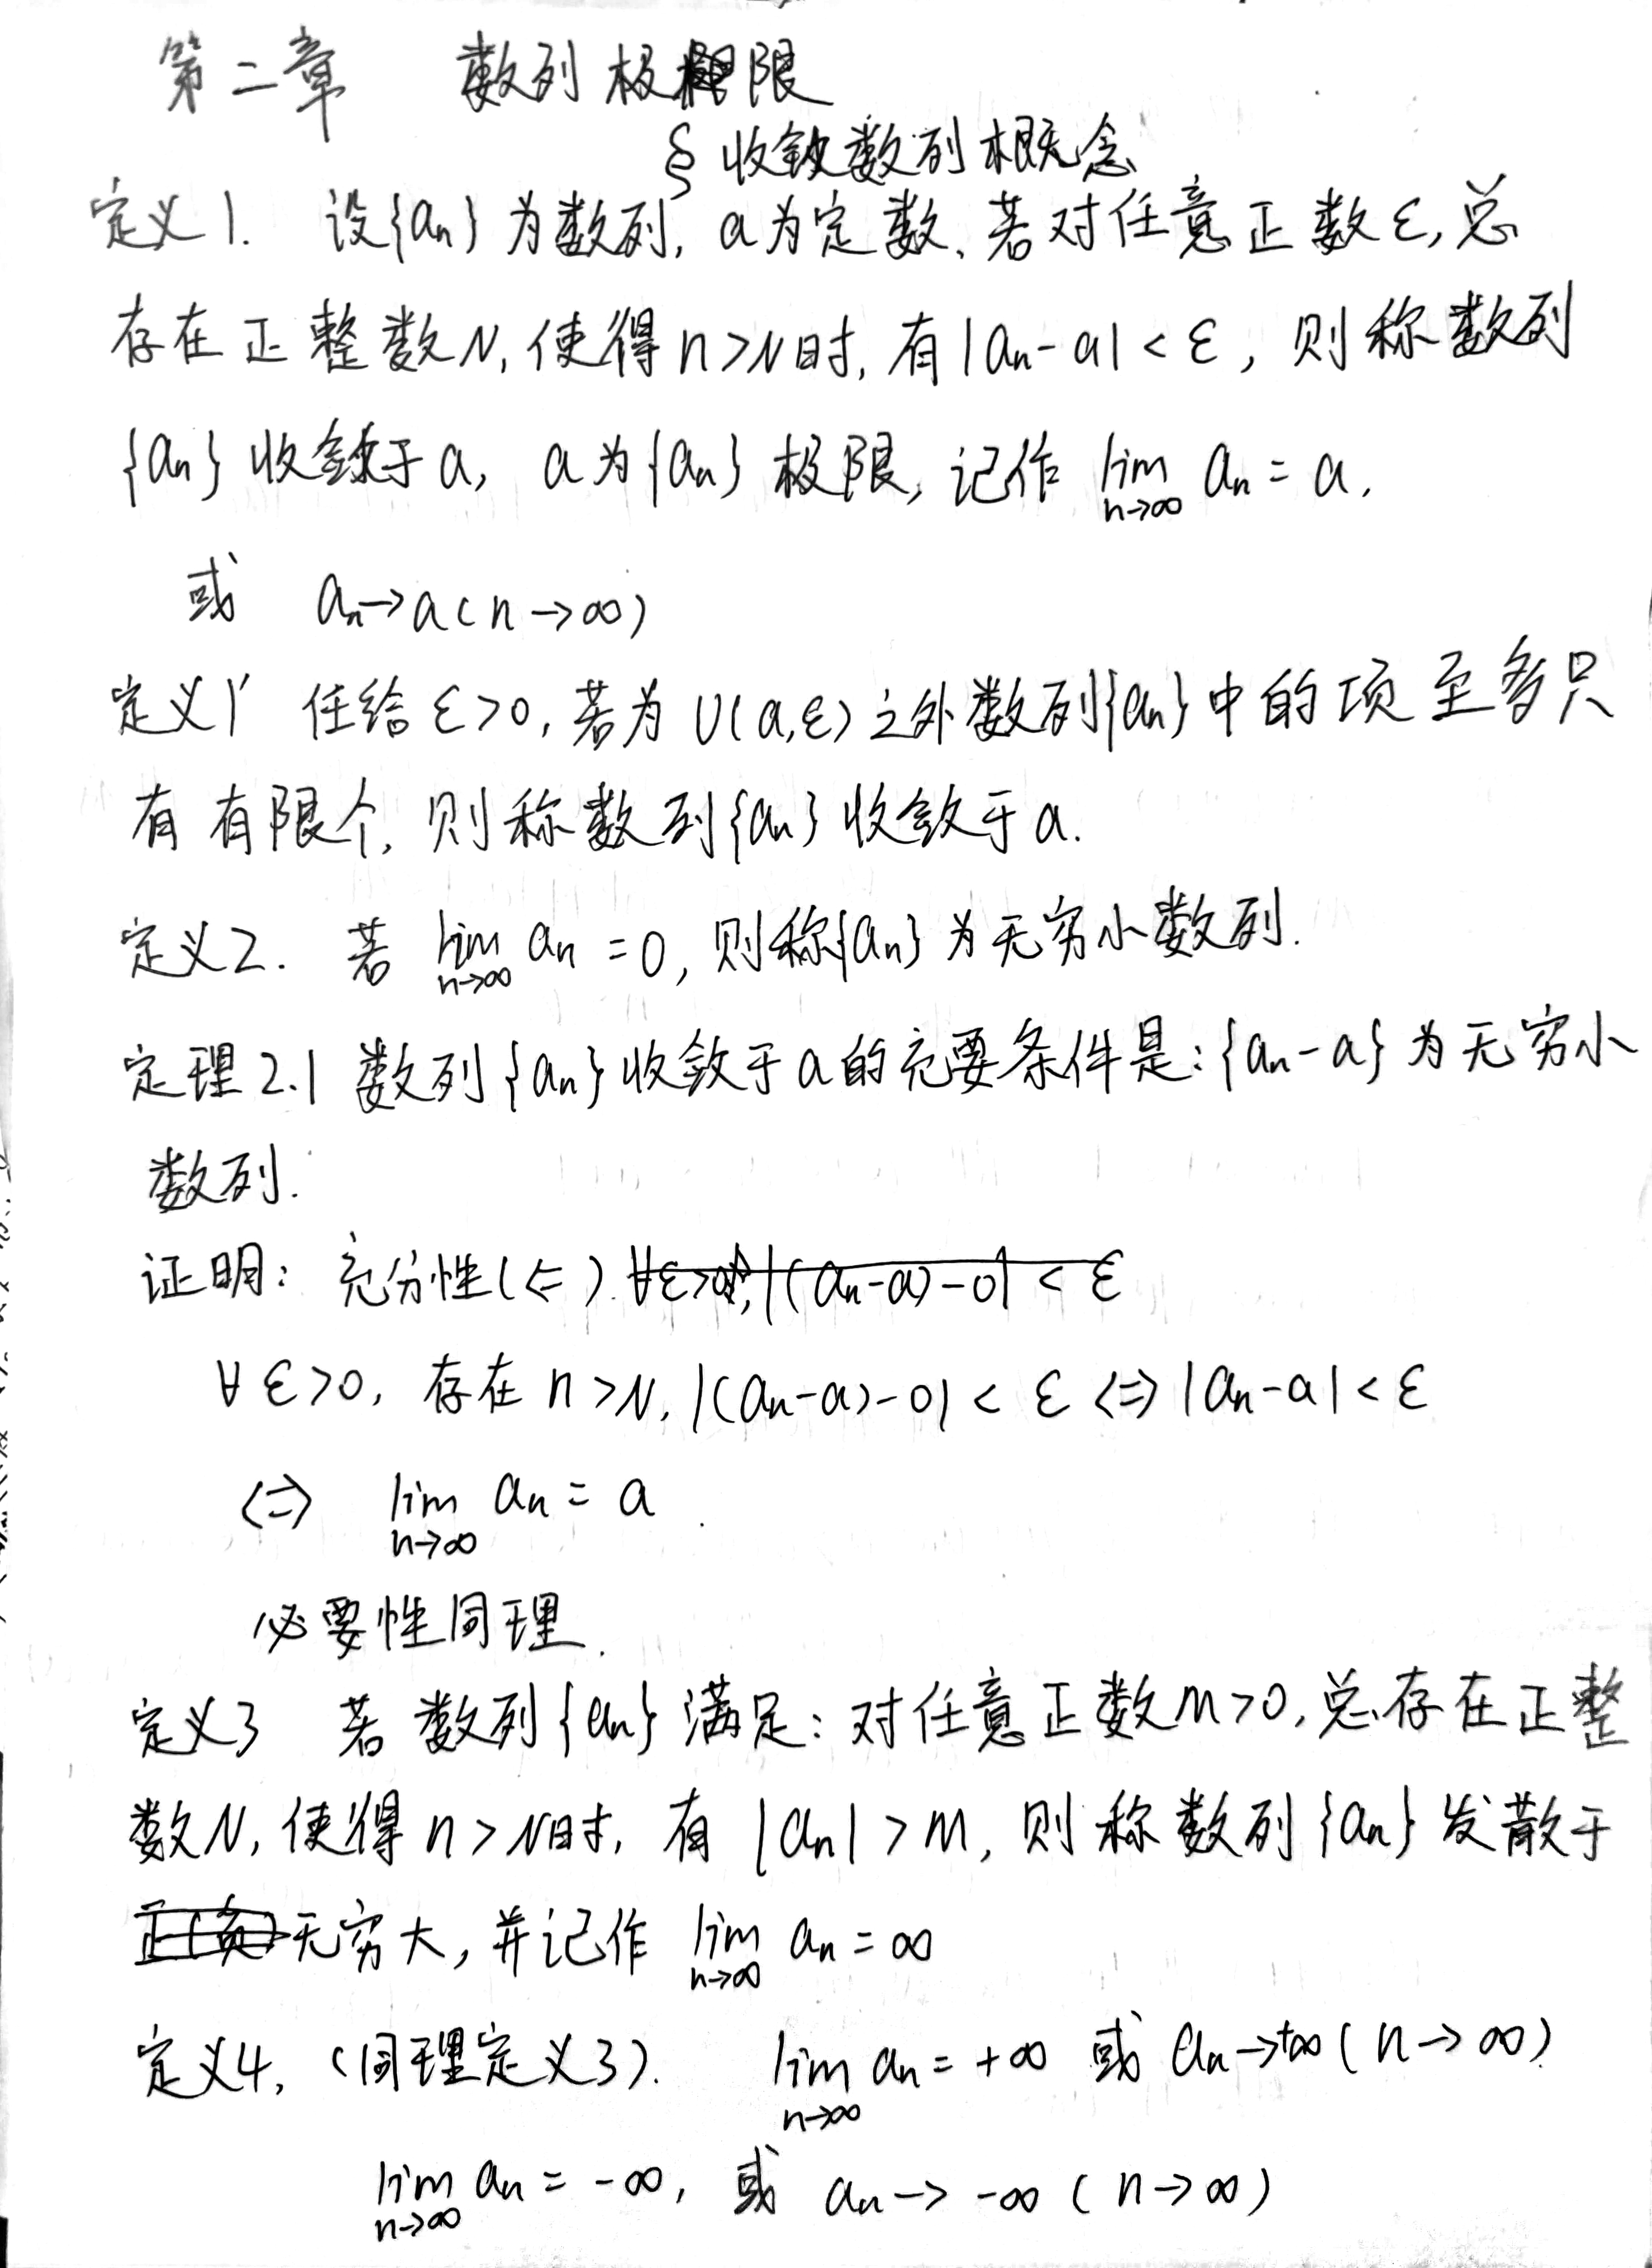 第二章 数列极限
§ 收敛数列概念
定义1. 设{aₙ}为数列, a为定数, 若对任意正数ε, 总
存在正整数N, 使得n>N时, 有|aₙ-a|<ε, 则称数列
{aₙ}收敛于a, a为{aₙ}极限, 记作 lim aₙ = a.
n→∞
或 aₙ→a(n→∞)
定义1' 任给ε>0, 若为U(a,ε)之外数列{aₙ}中的项至多只
有有限个, 则称数列{aₙ}收敛于a.
定义2. 若 lim aₙ = 0, 则称{aₙ}为无穷小数列.
n→∞
定理2.1 数列{aₙ}收敛于a的充要条件是: {aₙ-a}为无穷小
数列.
证明: 充分性(⇐) ∀ε>0, |(aₙ-a)-0| < ε
∀ε>0, 存在n>N, |(aₙ-a)-0| < ε ⇔ |aₙ-a| < ε
⇔ lim aₙ = a
n→∞
必要性同理.
定义3 若数列{aₙ}满足: 对任意正数M>0, 总存在正整
数N, 使得n>N时, 有|aₙ|>M, 则称数列{aₙ}发散于
正(负)无穷大, 并记作 lim aₙ = ∞
n→∞
定义4, (同理定义3). lim aₙ = +∞ 或 aₙ→+∞(n→∞)
n→∞
lim aₙ = -∞, 或 aₙ→ -∞(n→∞)
n→∞